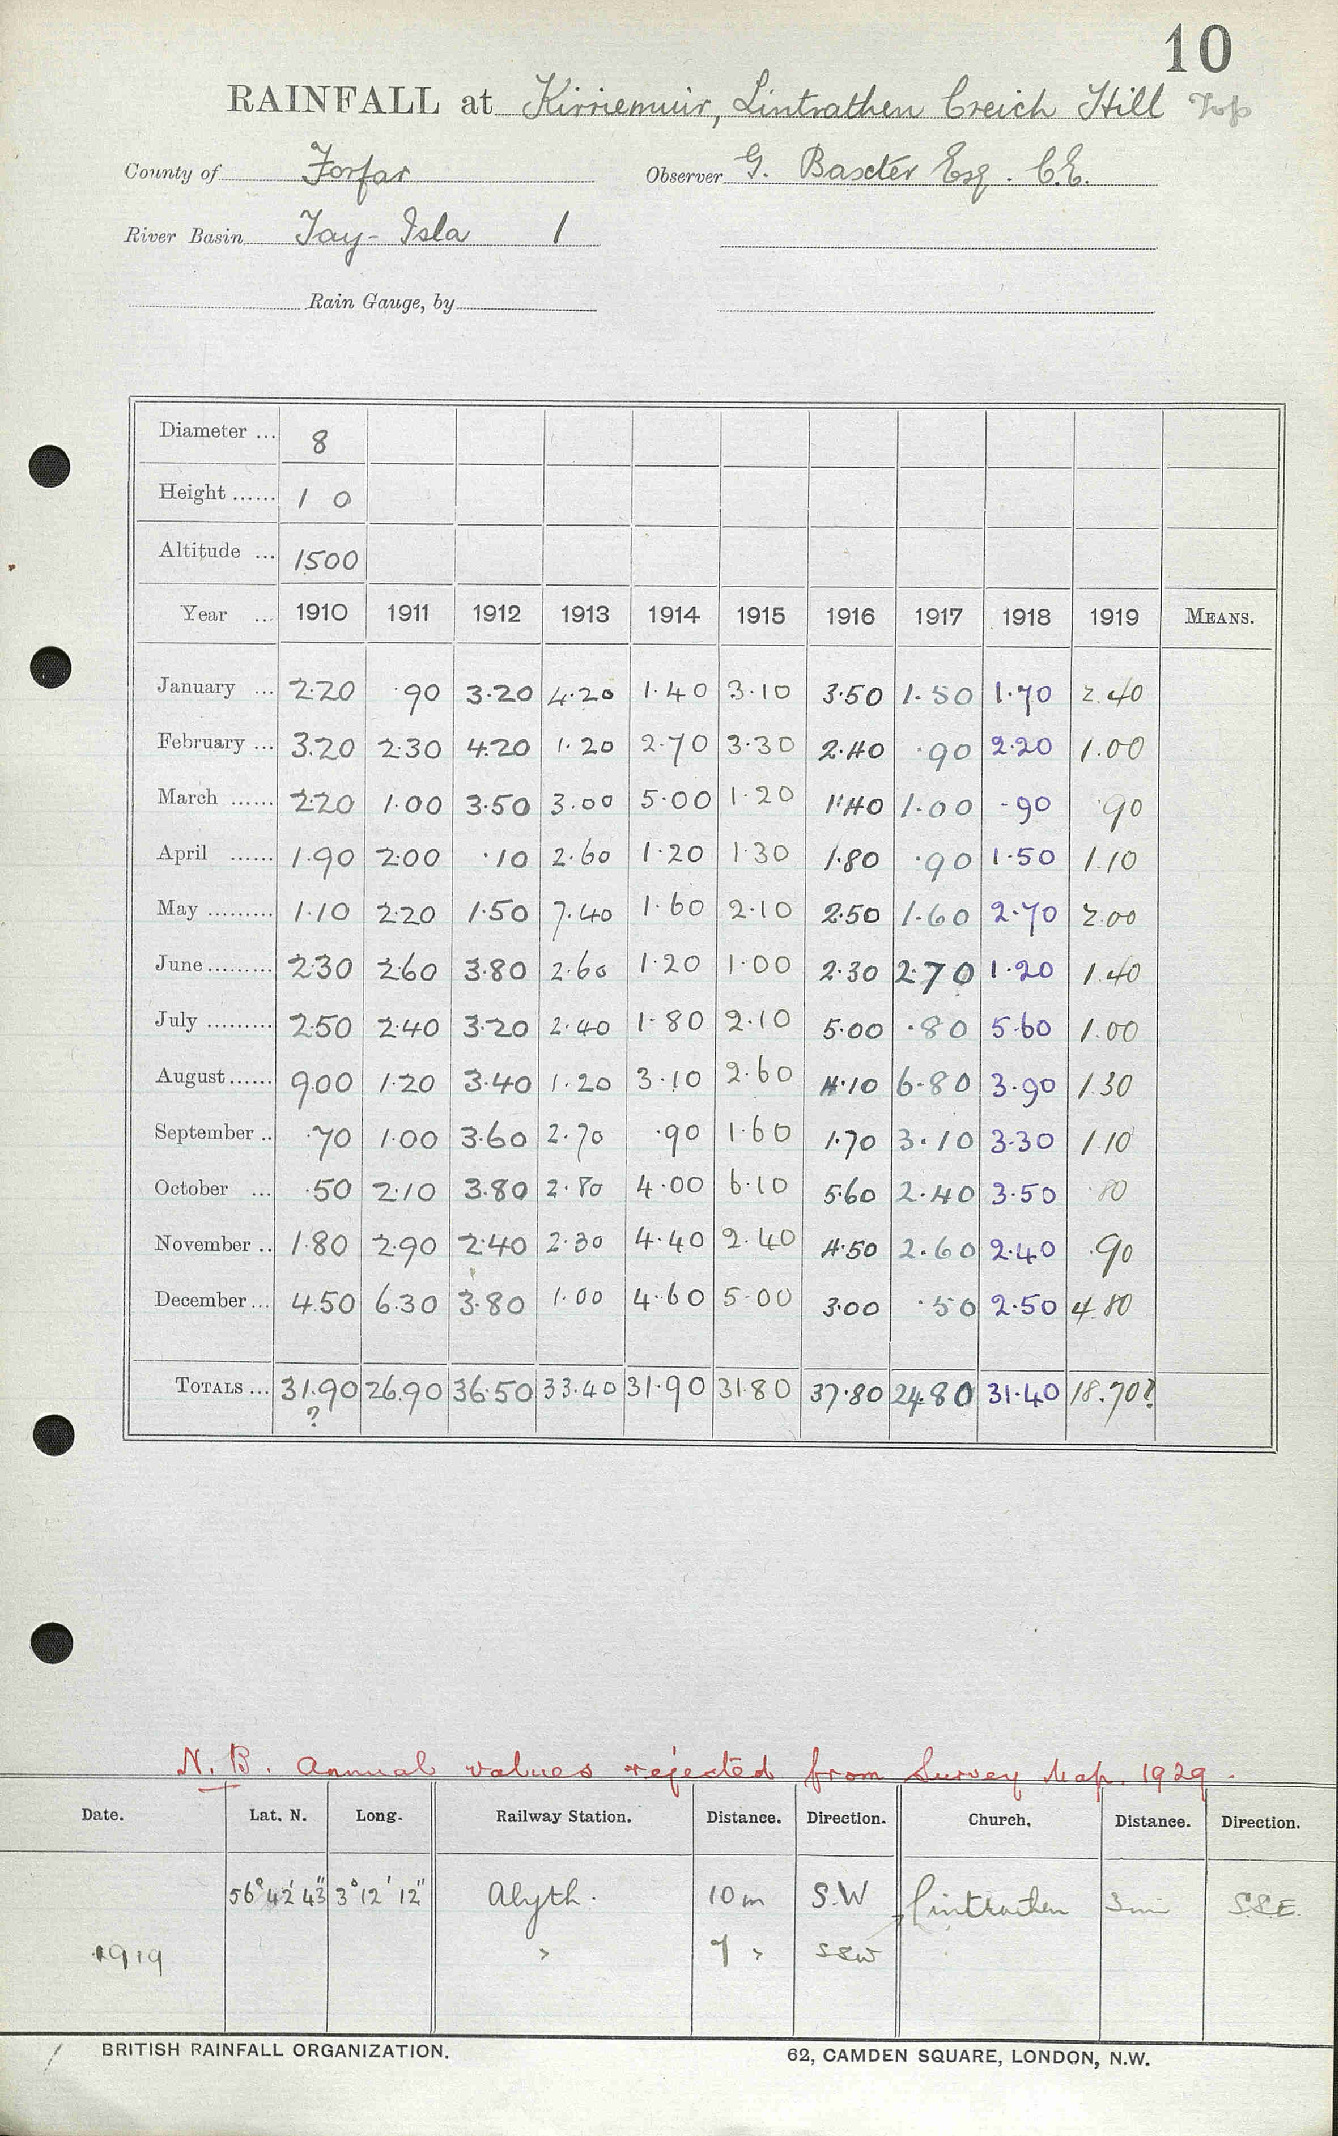 10
RAINFALL at Kirriemuir, Lintrathen Creich Hill Top
County of Forfar Observer G. Baxter Esq. C.E.
River Basin Tay - Isla 1
Rain Gauge, by
Diameter ... 8
Height ...... 1 0
Altitude ... 1500
Year ... 1910 1911 1912 1913 1914 1915 1916 1917 1918 1919 MEANS.
January ... 2.20 .90 3.20 4.20 1.40 3.10 3.50 1.50 1.70 2.40
February ... 3.20 2.30 4.20 1.20 2.70 3.30 2.40 .90 2.20 1.00
March ...... 2.20 1.00 3.50 3.00 5.00 1.20 1.40 1.00 .90 .90
April ...... 1.90 2.00 .10 2.60 1.20 1.30 1.80 .90 1.50 1.10
May ......... 1.10 2.20 1.50 7.40 1.60 2.10 2.50 1.60 2.70 2.00
June ......... 2.30 2.60 3.80 2.60 1.20 1.00 2.30 2.70 1.20 1.40
July ......... 2.50 2.40 3.20 2.40 1.80 2.10 5.00 .80 5.60 1.00
August ...... 9.00 1.20 3.40 1.20 3.10 2.60 4.10 6.80 3.90 1.30
September .. .70 1.00 3.60 2.70 .90 1.60 1.70 3.10 3.30 1.10
October ... .50 2.10 3.80 2.80 4.00 6.10 5.60 2.40 3.50 .80
November .. 1.80 2.90 2.40 2.30 4.40 2.40 4.50 2.60 2.40 .90
December ... 4.50 6.30 3.80 1.00 4.60 5.00 3.00 .50 2.50 4.80
TOTALS ... 31.90 26.90 36.50 33.40 31.90 31.80 37.80 24.80 31.40 18.70?
?
N.B. Annual values rejected from Survey Map. 1929.
Date. Lat. N. Long. Railway Station. Distance. Direction. Church. Distance. Direction.
56° 42' 43" 3° 12' 12" Alyth. 10 m S.W Lintrathen 3 mi S.S.E.
1919 " 7 " SSW
BRITISH RAINFALL ORGANIZATION. 62, CAMDEN SQUARE, LONDON, N.W.